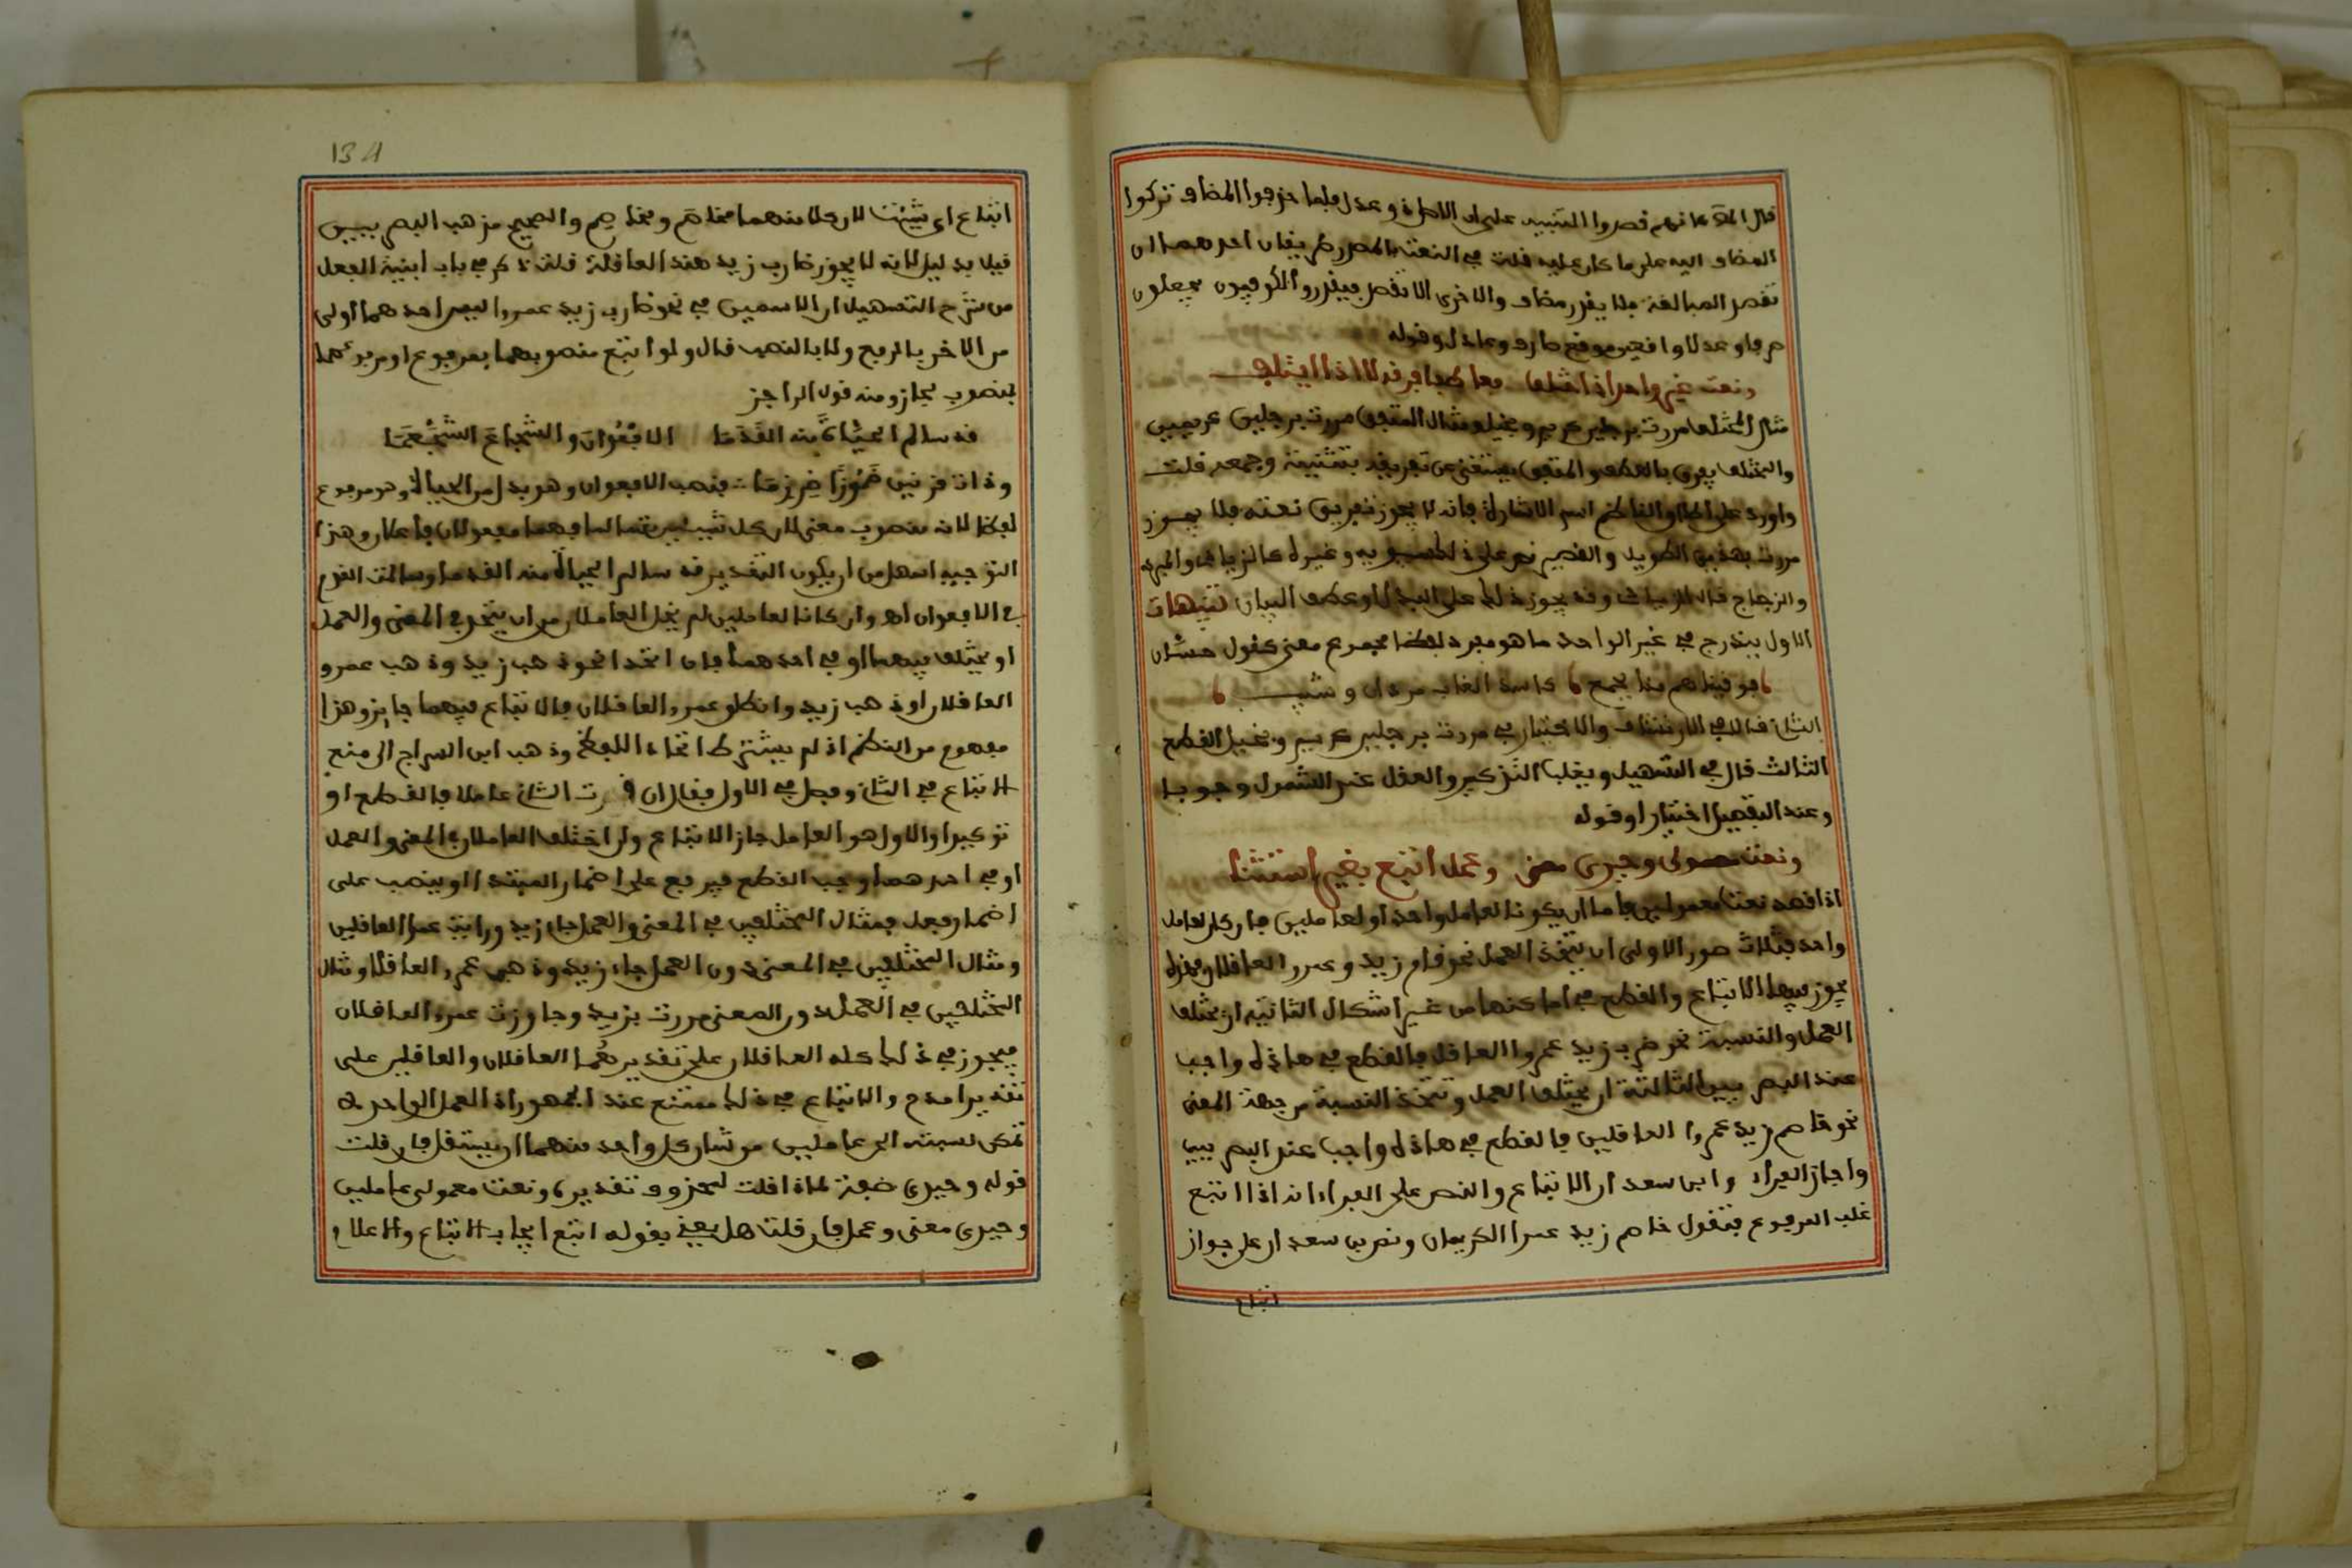 قال المص كانهم قصدوا التنبيه على ان الاصل ذو عدل فلما حذفوا المضاف تركوا
المضاف اليه على ما كان عليه قلت في النعت بالمصدر طريقان احدهما ان
تقصد المبالغة فلا يقدر مضاف والاخرى الا تقصد فيقدر والكوفيون يجعلون
رضا وعدلا واقعين موقع وعادل وقوله
ونعت غير واحد اذا اختلف فعاطفا فرقه لا اذا ائتلف
مثال المختلف مررت برجلين كريم وبخيل ومثال المتفق مررت برجلين كريمين
والمختلف يفرق بالعطف والمتفق يستغنى عن تفريقه بتثنيته وجمعه قلت
واورد على اطلاق الناظم اسم الاشارة فانه لا يجوز تفريق نعته فلا يجوز
مررت بهذين الطويل والقصير نص على ذلك سيبويه وغيره كالزيادي والمبرد
والزجاج قال الزيادي وقد يجوز ذلك على البدل او عطف البيان تنبيهات
الاول يندرج في غير الواحد ما هو مفرد لفظا مجموع معنى كقول حسان
فوافيناهم منا بجمع كاسد الغاب مردان وشيب
الثاني قال في الارتشاف والاختيار في مررت برجلين كريم وبخيل القطع
الثالث قال في التسهيل ويغلب التذكير والعقل عند الشمول وجوبا
وعند التفصيل اختيارا وقوله
ونعت معمولي وحيدي معنى وعمل اتبع بغير استثنا
اذا قصد نعت معمولين فاما ان يكونا لعامل واحد او لعاملين فان كان لعامل
واحد فثلاث صور الاولى ان يتحد العمل نحو قام زيد وعمرو العاقلان وهذه
يجوز فيها الاتباع والقطع في اماكنها من غير اشكال الثانية ان يختلف
العمل والنسبة نحو ضرب زيد عمروا العاقل فالقطع في هاذه واجب
عند البصريين الثالثة ان يختلف العمل وتتحد النسبة من جهة المعنى
نحو خاصم زيد عمروا العاقلين فالقطع في هاذه واجب عند البصريين
واجاز الفراء وابن سعدان الاتباع والنص على الفراء انه اذا اتبع
غلب المرفوع فتقول خاصم زيد عمرا الكريمان ونص ابن سعدان على جواز
اتباع
134
اتباع اي شئت لان كلا منهما مخاصم ومخاصم والصحيح مذهب البصريين
قيل بدليل انه لا يجوز ضارب زيد هند العاقلة قلت ذكر في باب ابنية الفعل
من شرح التسهيل ان الاسمين في نحو ضارب زيد عمروا ليس احدهما اولى
من الاخر بالرفع ولا بالنصب قال ولو اتبع منصوبهما بمرفوع او مرفوعهما
بمنصوب لجاز ومنه قول الراجز
قد سالم الحيات منه القدما الافعوان والشجاع الشجعما
وذات قرنين ضموزا ضرزما فنصب الافعوان وهو بدل من الحيات وهو مرفوع
لفظا لانه منصوب معنى لان كل شيئين تسالما فهما مفعولان فاعلان وهذا
التوجيه اسهل من ان يكون التقدير قد سالم الحيات منه القدما وسالمت القدم
الافعوان اه وان كانا لعاملين لم يخل العاملان من ان يتحدا في المعنى والعمل
او يختلفا فيهما او في احدهما فان اتحدا نحو ذهب زيد وذهب عمرو
العاقلان او ذهب زيد وانطلق عمرو العاقلان فالاتباع فيهما جايز وهذا
مفهوم من النظم اذ لم يشترط اتحاد اللفظ وذهب ابن السراج الى منع
الاتباع في الثاني وفصل في الاول فقال ان قدرت الثاني عاملا فالقطع او
توكيدا والاول هو العامل جاز الاتباع وان اختلف العاملان في المعنى والعمل
او في احدهما وجب القطع فيرفع على اضمار المبتدا او ينصب على
اضمار فعل فمثال المختلفين في المعنى والعمل جاء زيد ورايت عمرا العاقلين
ومثال المختلفين في المعنى دون العمل جاء زيد وذهب عمرو العاقلان ومثال
المختلفين في العمل دون المعنى مررت بزيد وجاوزت عمرا العاقلان
فيجوز في ذلك كله العاقلان على تقدير هما العاقلان والعاقلين على
تقدير امدح والاتباع في ذلك ممتنع عند الجمهور اذ العمل الواحد لا
تمكن نسبته الى عاملين من شان كل واحد منهما ان يستقل فان قلت
قوله وحيدي صفة لماذا قلت لمحذوف تقديره ونعت معمولي عاملين
وحيدي معنى وعمل فان قلت هل يعني بقوله اتبع ايجاب الاتباع والاعلام